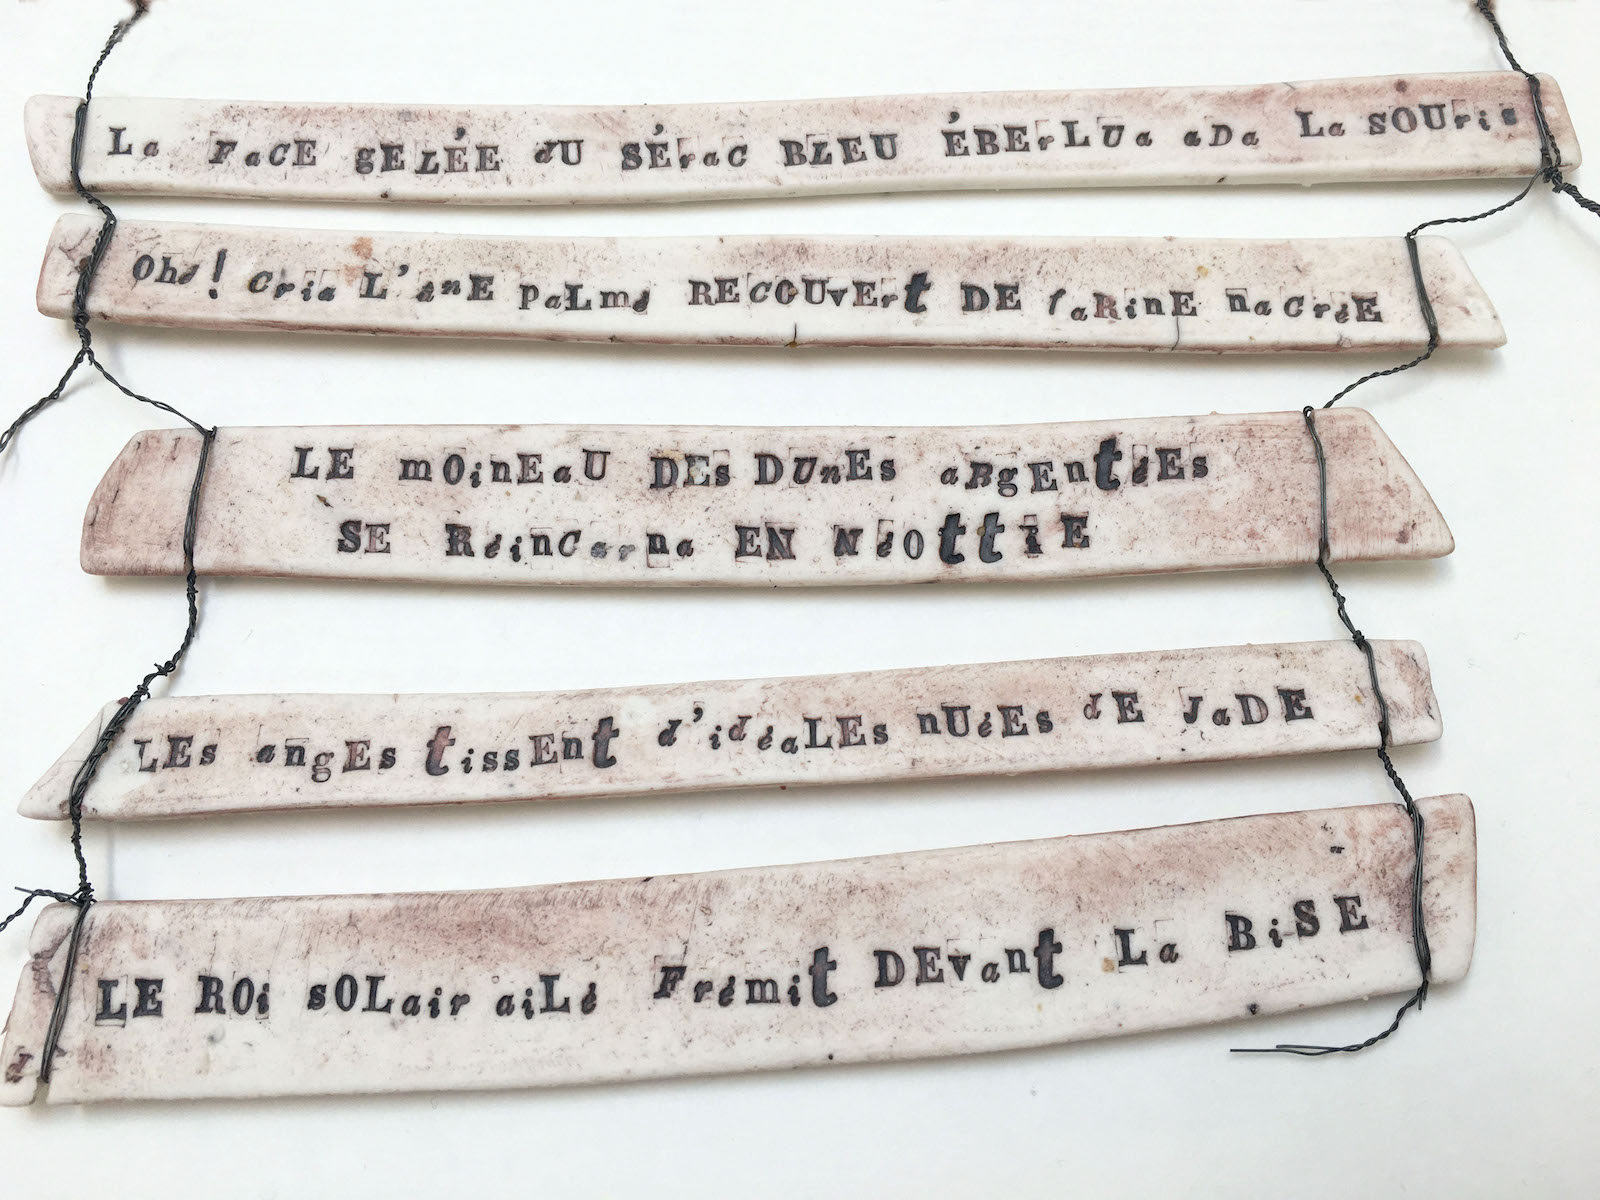 La FaCE gELÉE dU SÉraC BLEU ÉBErLUa aDa La SOUris
Ohé! Cria L'ânE paLmé RECOUvErt DE faRinE naCréE
LE mOinEaU DEs DUnEs aRgEntéEs
SE RéinCarna EN NéOttiE
LEs angEs tissEnt d'idéaLEs nUéEs dE JaDE
LE ROi sOLair aiLé FrémiT DEvant La BiSE